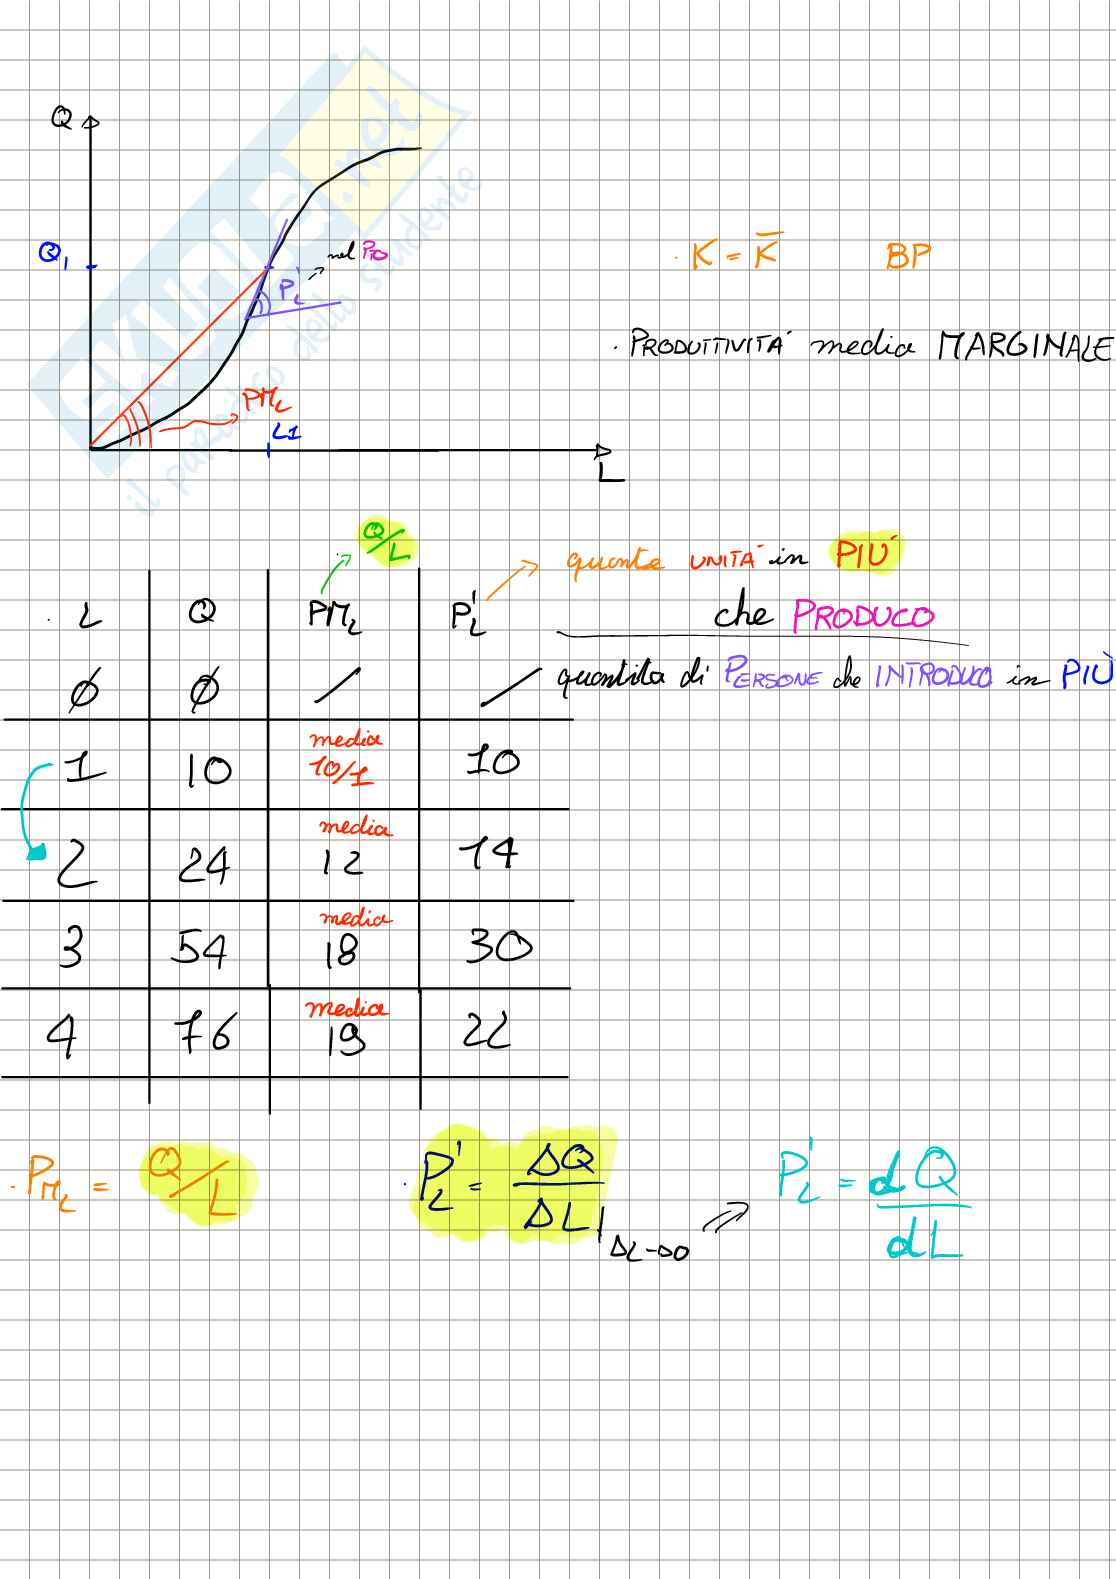 SKUOLA.net
il paradiso dello studente
Q
Q₁
P'L nel PTO
PML
L1
L
· K = K̅ BP
· PRODUTTIVITÀ media MARGINALE
Q/L
quante UNITÀ in PIÙ
che PRODUCO
quantita di PERSONE che INTRODUCO in PIÙ
· L Q PML P'L
Ø Ø / /
1 10 media 10/1 10
2 24 media 12 14
3 54 media 18 30
4 76 media 19 22
· PML = Q/L · P'L = ΔQ/ΔL | ΔL→0 ⇒ P'L = dQ/dL